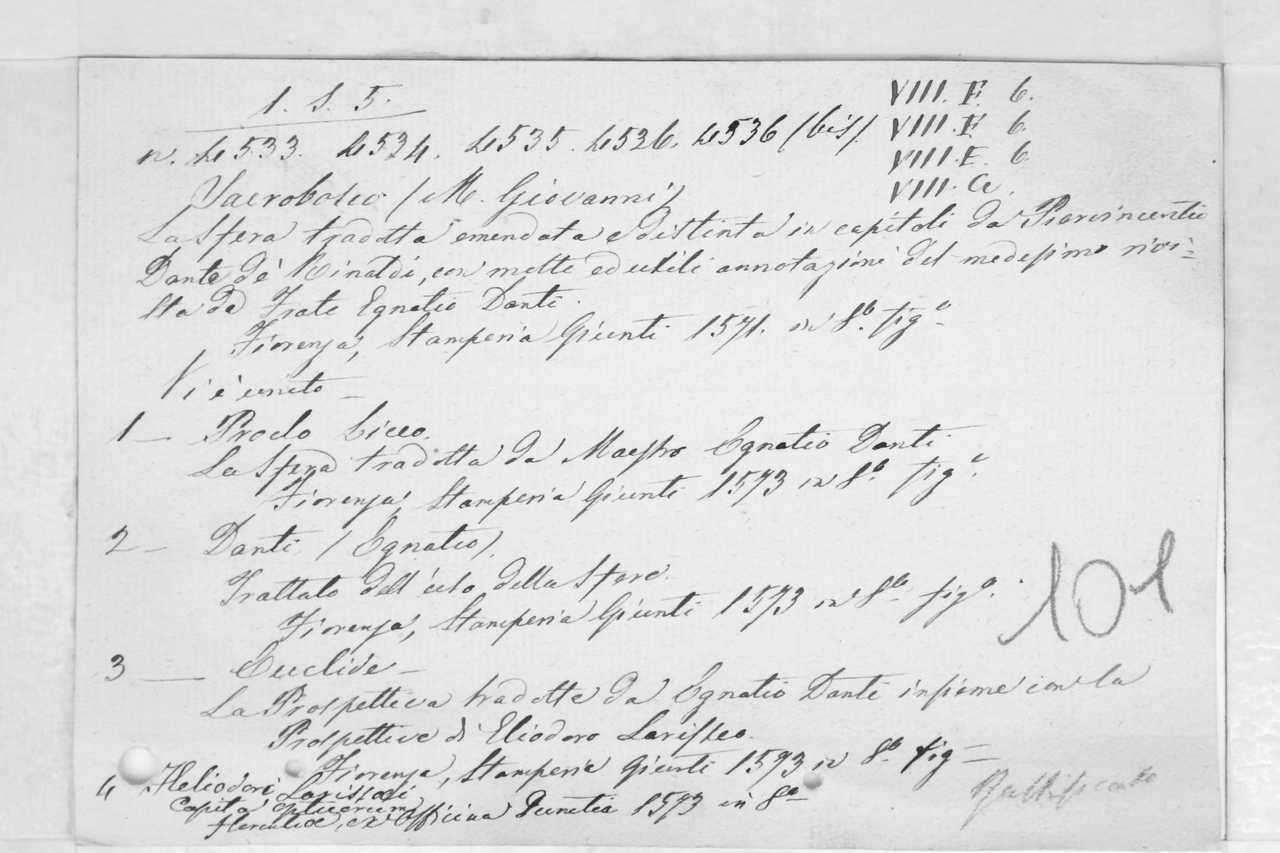 1. S. 5.
VIII. F. 6.
n. 4533. 4534. 4535. 4526. 4536 (bis).
VIII. F. 6.
VIII. E. 6
VIII. Ce.
Sacrobosco (M. Giovanni)
La Sfera tradotta emendata e distinta in capitoli da Piervincentio
Dante de' Rinaldi, con molte ed utili annotazioni del medesimo rivi=
sta da Frate Egnatio Danti.
Fiorenza, Stamperia Giunti 1571. in 8.º fig.º
Vi è unito —
1 — Proclo Liceo.
La Sfera tradotta da Maestro Egnatio Danti
Fiorenza, Stamperia Giunti 1573 in 8.º fig.º
2 — Danti (Egnatio).
Trattato dell'uso della Sfera.
Fiorenza, Stamperia Giunti 1573 in 8.º fig.º
101
3 — Euclide —
La Prospettiva tradotta da Egnatio Danti insieme con la
Prospettiva di Eliodoro Larisseo.
Fiorenza, Stamperia Giunti 1573 in 8.º fig —
4 Heliodori Larissaei
Capita Opticorum
Florentiae, ex Officina Iunctia 1573 in 8º